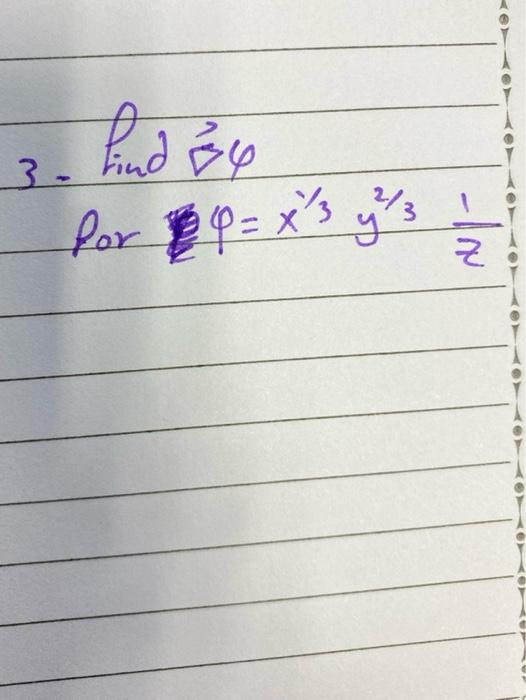 3- Find ∇⃗φ
for φ = x^{1/3} y^{2/3} \frac{1}{z}